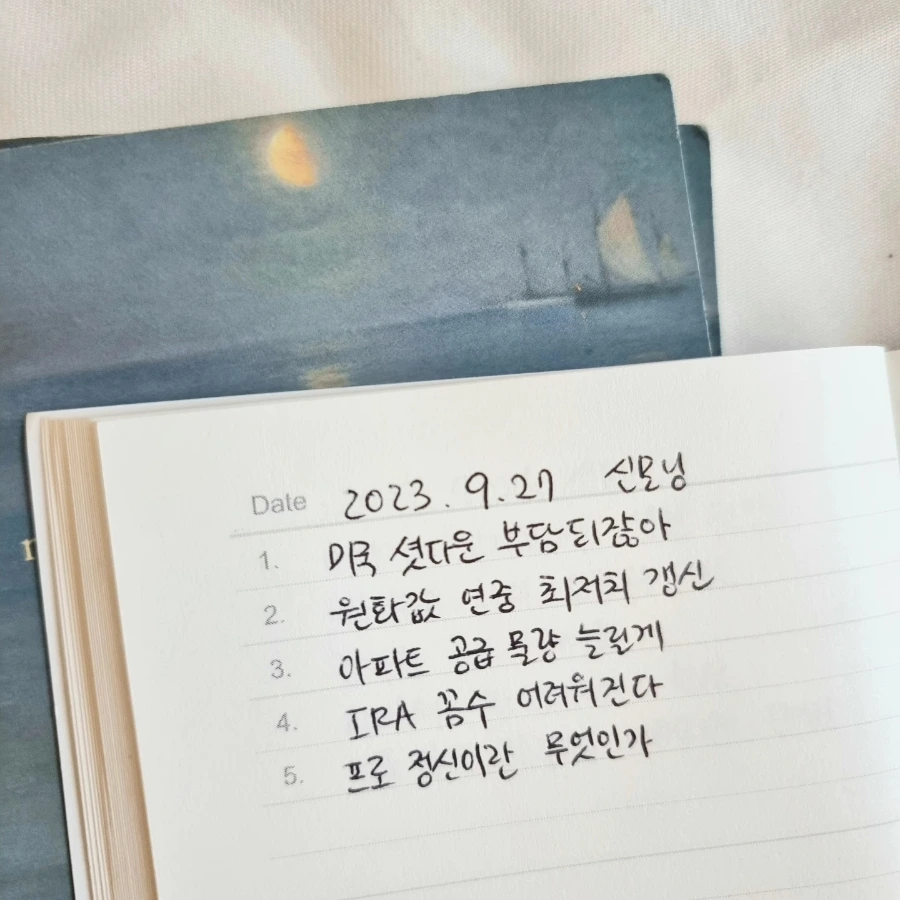 Date 2023.9.27 신모닝
1. 미국 셧다운 부담되잖아
2. 원화값 연중 최저치 갱신
3. 아파트 공급 물량 늘릴게
4. IRA 꼼수 어려워진다
5. 프로 정신이란 무엇인가